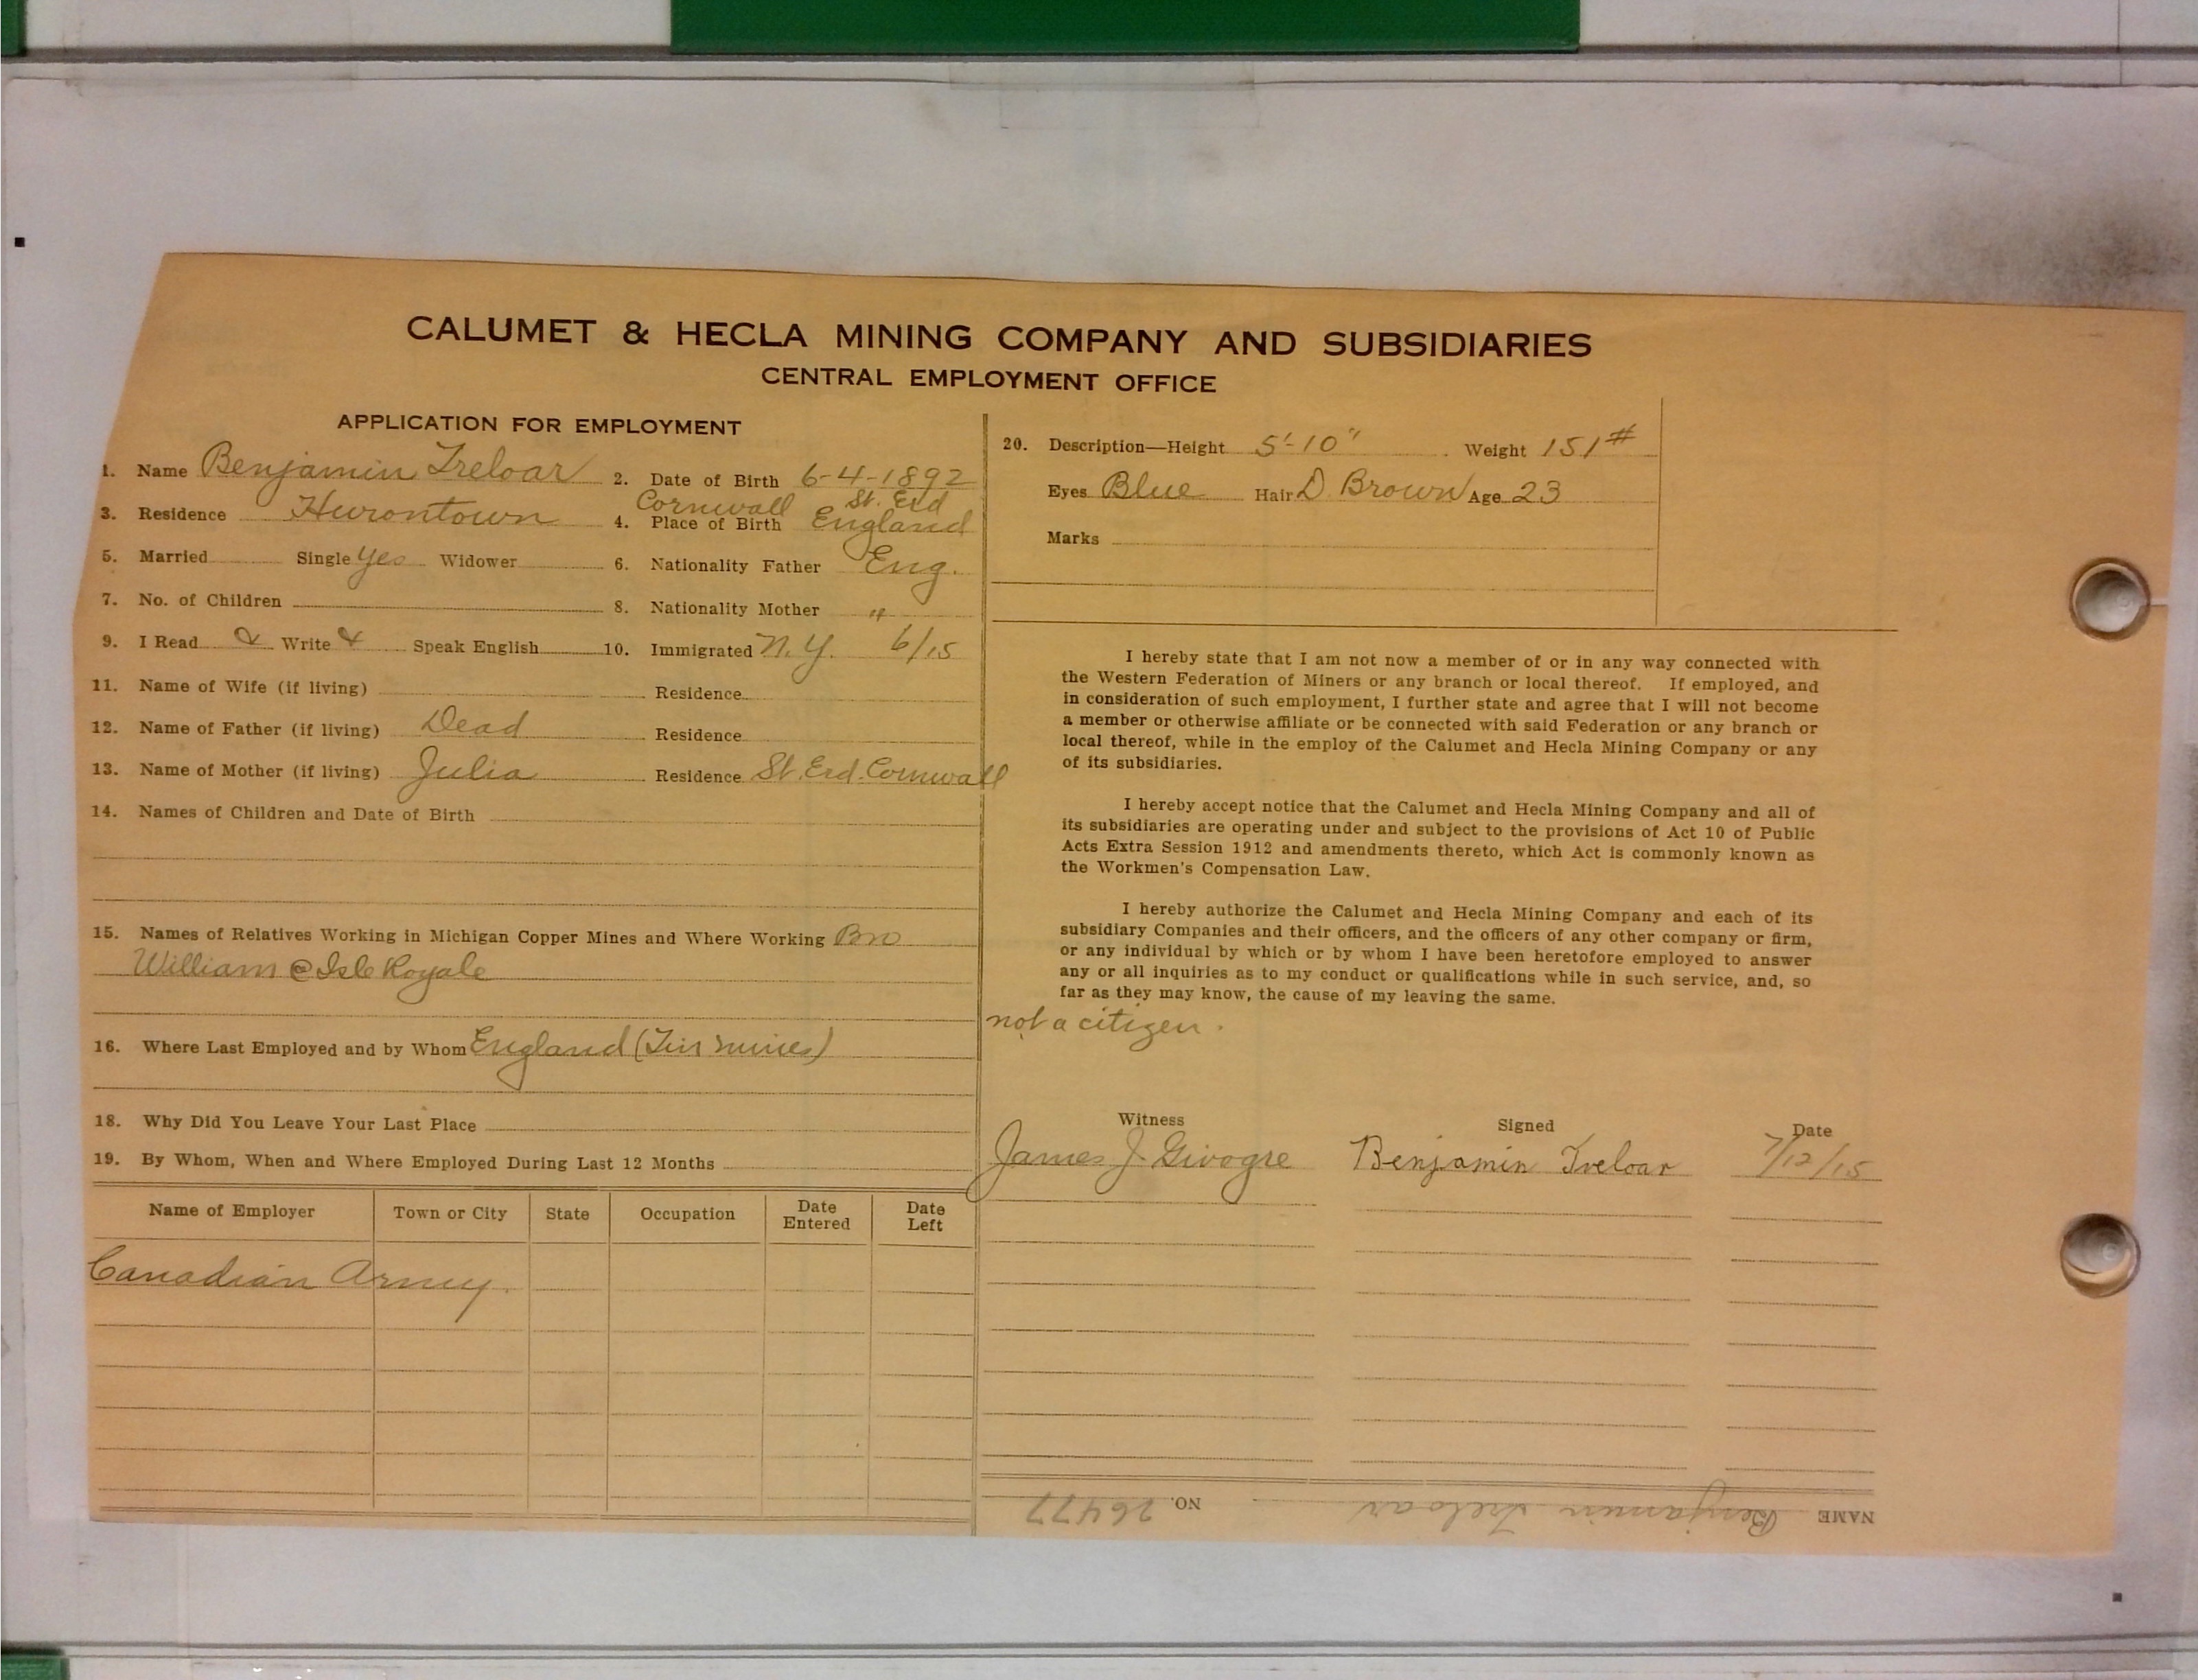 CALUMET & HECLA MINING COMPANY AND SUBSIDIARIES
CENTRAL EMPLOYMENT OFFICE
APPLICATION FOR EMPLOYMENT
1. Name Benjamin Treloar 2. Date of Birth 6-4-1892
Cornwall St. Erd
3. Residence Hurontown 4. Place of Birth England
5. Married Single Yes Widower 6. Nationality Father Eng.
7. No. of Children 8. Nationality Mother "
9. I Read & Write & Speak English 10. Immigrated N.Y. 6/15
11. Name of Wife (if living) Residence
12. Name of Father (if living) Dead Residence
13. Name of Mother (if living) Julia Residence St. Erd. Cornwall
14. Names of Children and Date of Birth
15. Names of Relatives Working in Michigan Copper Mines and Where Working Bro
William @ Isle Royale
16. Where Last Employed and by Whom England (Tin mines)
18. Why Did You Leave Your Last Place
19. By Whom, When and Where Employed During Last 12 Months
Name of Employer Town or City State Occupation Date Entered Date Left
Canadian Army.
20. Description—Height 5'-10" Weight 151#
Eyes Blue Hair D. Brown Age 23
Marks
I hereby state that I am not now a member of or in any way connected with
the Western Federation of Miners or any branch or local thereof. If employed, and
in consideration of such employment, I further state and agree that I will not become
a member or otherwise affiliate or be connected with said Federation or any branch or
local thereof, while in the employ of the Calumet and Hecla Mining Company or any
of its subsidiaries.
I hereby accept notice that the Calumet and Hecla Mining Company and all of
its subsidiaries are operating under and subject to the provisions of Act 10 of Public
Acts Extra Session 1912 and amendments thereto, which Act is commonly known as
the Workmen's Compensation Law.
I hereby authorize the Calumet and Hecla Mining Company and each of its
subsidiary Companies and their officers, and the officers of any other company or firm,
or any individual by which or by whom I have been heretofore employed to answer
any or all inquiries as to my conduct or qualifications while in such service, and, so
far as they may know, the cause of my leaving the same.
not a citizen.
Witness Signed Date
James J. Givogre Benjamin Treloar 7/12/15
NAME Benjamin Treloar NO. 26477